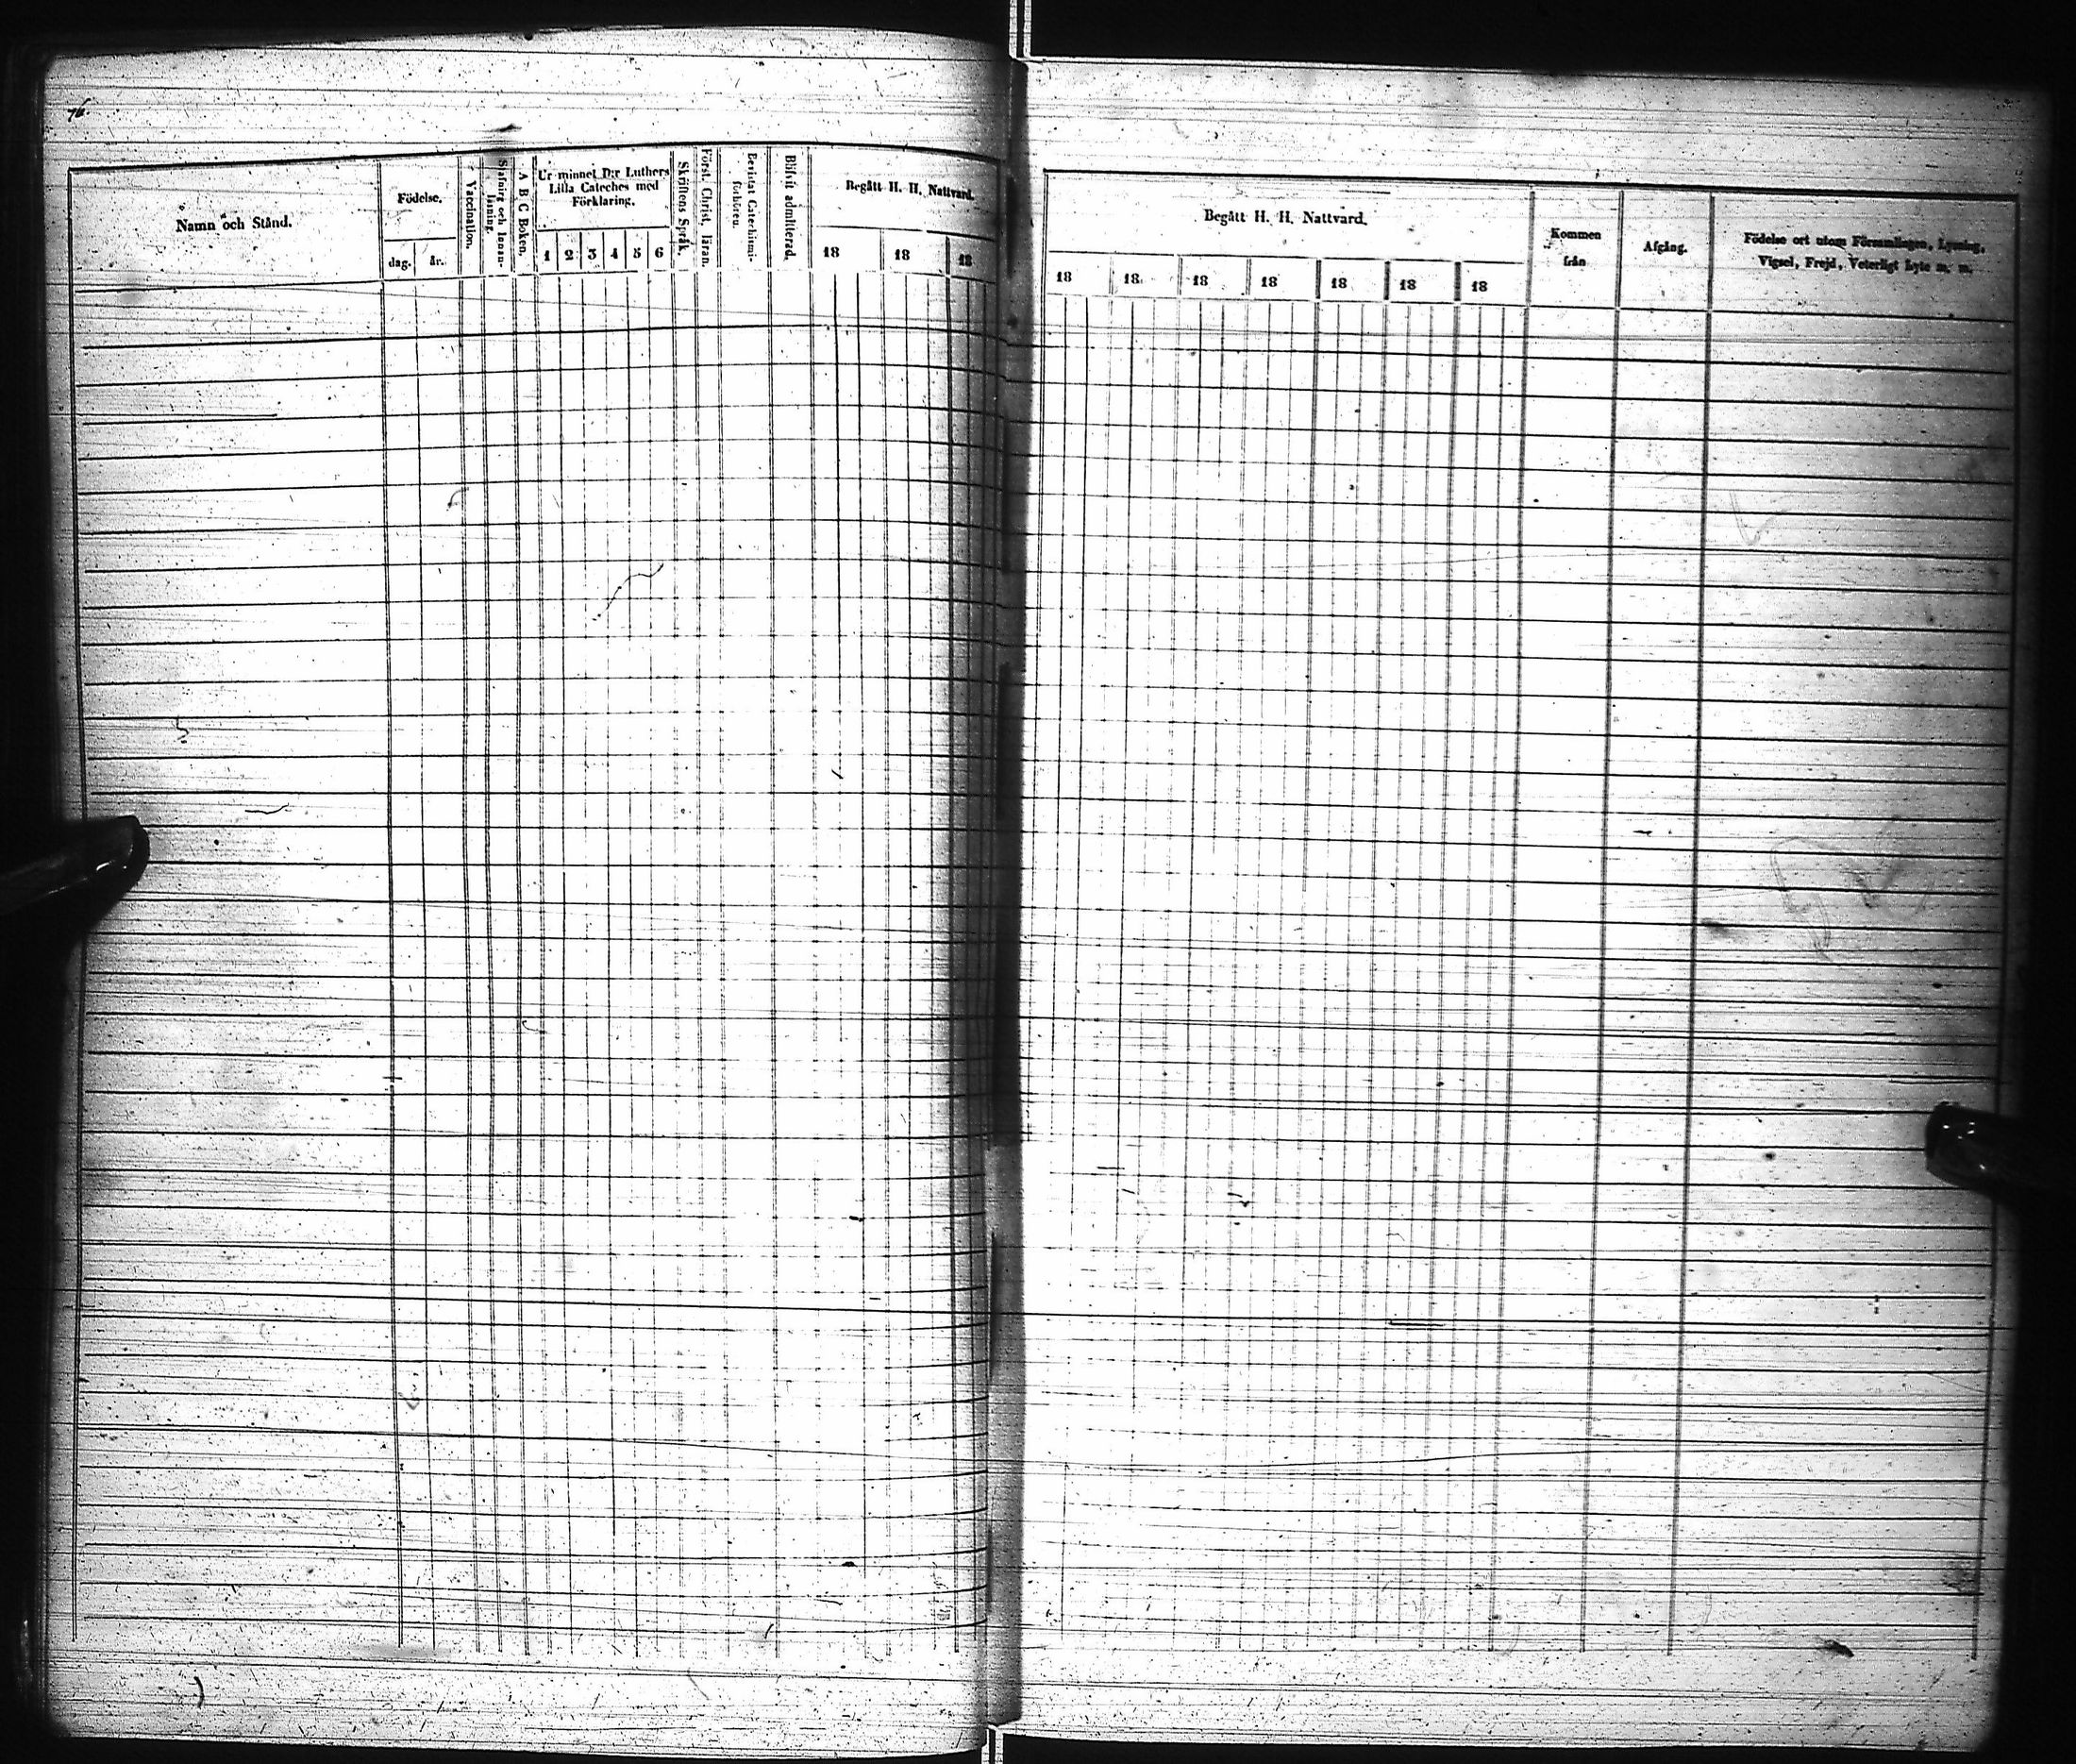 76.
Namn och Stånd.
Födelse.
dag.
år.
Vaccination.
Stafning och Innan-
läsning.
A B C Boken.
Ur minnet D:r Luthers
Lilla Cateches med
Förklaring.
1 2 3 4 5 6
Skriftens Språk.
Först. Christ. läran.
Bevistat Catechismi-
förhören.
Blifvit admitterad.
Begått H. H. Nattvard.
18 18 18
Begått H. H. Nattvard.
18 18 18 18 18 18 18
Kommen
från
Afgång.
Födelse ort utom Församlingen, Lysning,
Vigsel, Frejd, Veterligt Lyte m. m.